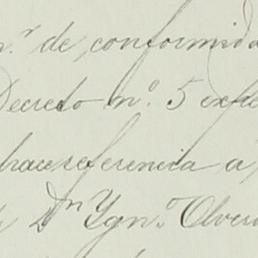 n.º de conformida
Decreto n.º 5 expe
hace referencia a
Dn Ygn.º Olvera